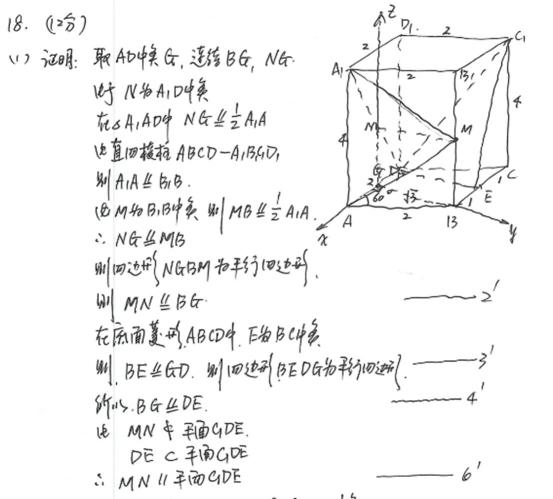 18. (12分)
(1) 证明: 取AD中点G, 连结BG, NG.
由于 N为A₁D中点
在△A₁AD中 NG⫽½A₁A
由直四棱柱ABCD-A₁B₁C₁D₁
则A₁A⫽B₁B.
由M为B₁B中点 则MB⫽½A₁A.
∴ NG⫽MB
则四边形NGBM为平行四边形.
则 MN⫽BG. 2'
在底面菱形ABCD中, E为BC中点
则, BE⫽GD. 则四边形BEDG为平行四边形. 3'
所以BG⫽DE. 4'
由 MN⊄平面C₁DE.
DE⊂平面C₁DE
∴ MN∥平面C₁DE 6'
z
D₁
2
C₁
2
A₁
2
B₁
4
4
N
M
G
D
C
2
60°
√3
1
E
1
A
2
B
x
y